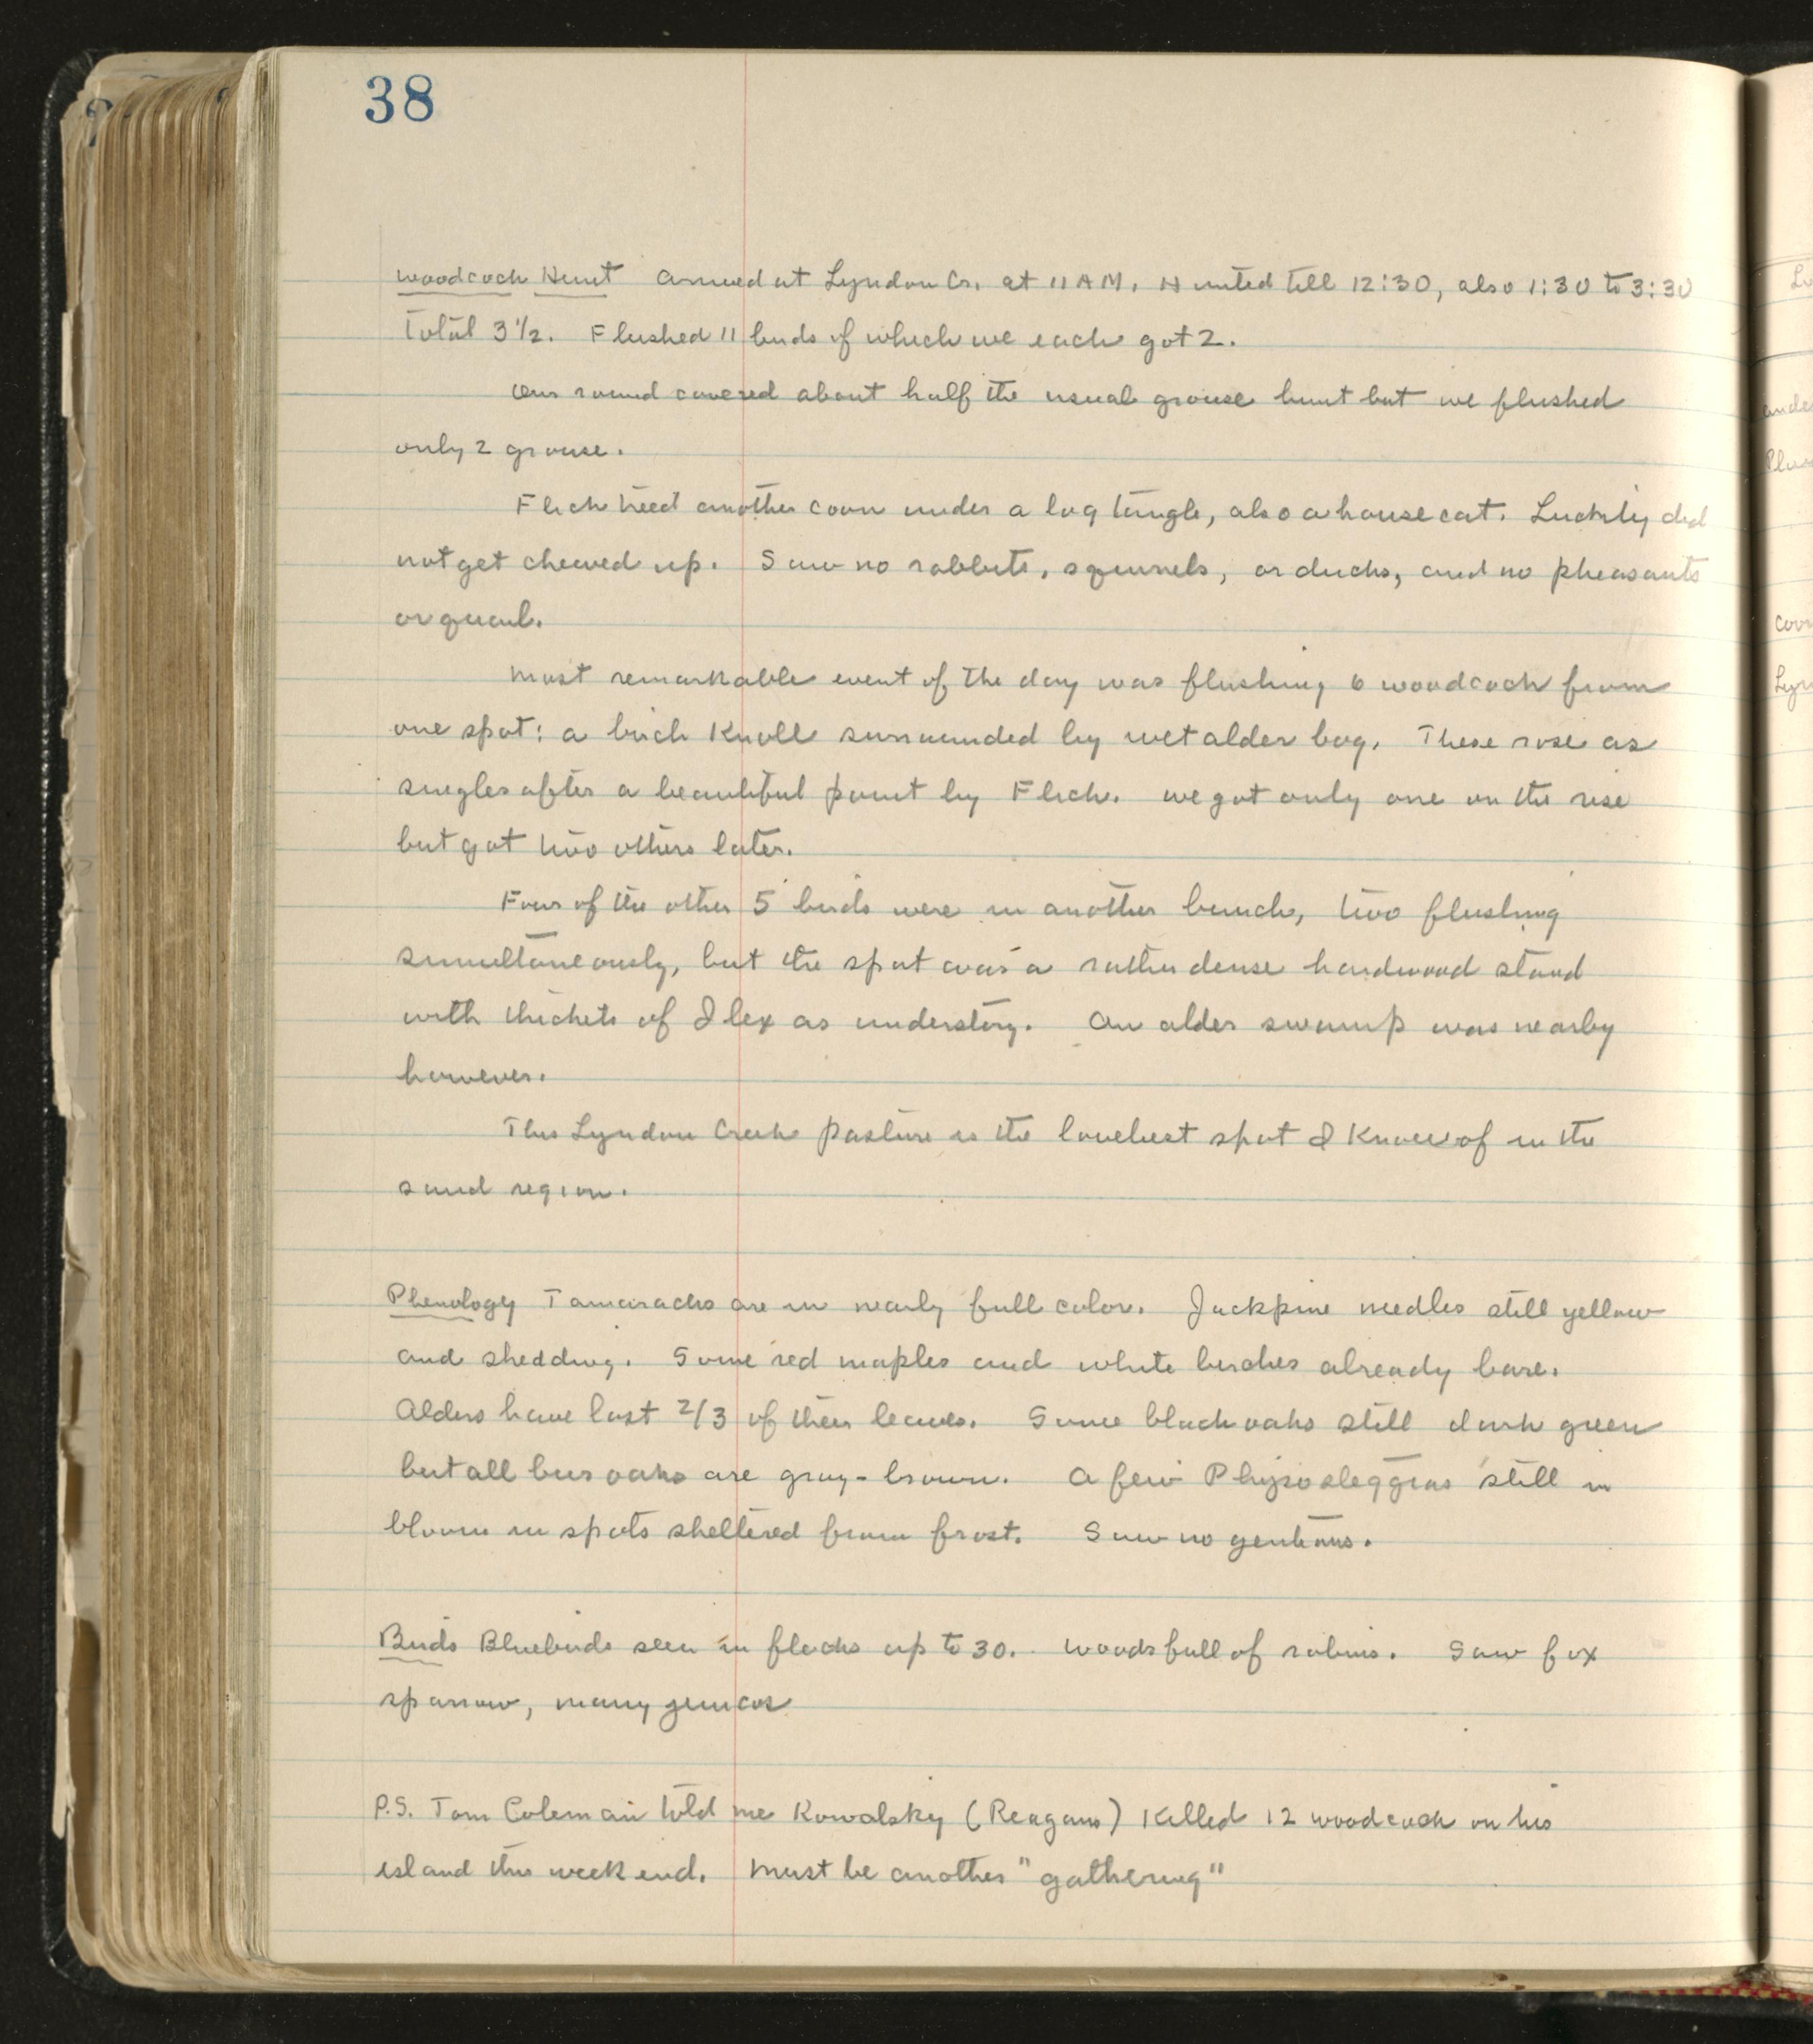 38
Woodcock Hunt Arrived at Lyndon Cr. at 11 AM. Hunted till 12:30, also 1:30 to 3:30
Total 3 1/2. Flushed 11 birds of which we each got 2.
Our round covered about half the usual grouse hunt but we flushed
only 2 grouse.
Flick treed another coon under a log tangle, also a house cat. Luckily did
not get chewed up. Saw no rabbits, squirrels, or ducks, and no pheasants
or quail.
Most remarkable event of the day was flushing 6 woodcock from
one spot: a birch knoll surrounded by wet alder bog. These rose as
singles after a beautiful point by Flick. We got only one on the rise
but got two others later.
Four of the other 5 birds were in another bunch, two flushing
simultaneously, but the spot was a rather dense hardwood stand
with thickets of Ilex as understory. An alder swamp was nearby
however.
This Lyndon Creek pasture is the loveliest spot I know of in the
sand region.
Phenology Tamaracks are in nearly full color. Jackpine needles still yellow
and shedding. Some red maples and white birches already bare.
Alders have lost 2/3 of their leaves. Some black oaks still dark green
but all bur oaks are gray-brown. A few Physosteggias still in
bloom in spots sheltered from frost. Saw no gentians.
Birds Bluebirds seen in flocks up to 30. Woods full of robins. Saw fox
sparrow, many juncos
P.S. Tom Coleman told me Kowalsky (Reagans) killed 12 woodcock on his
island this week end. Must be another "gathering"